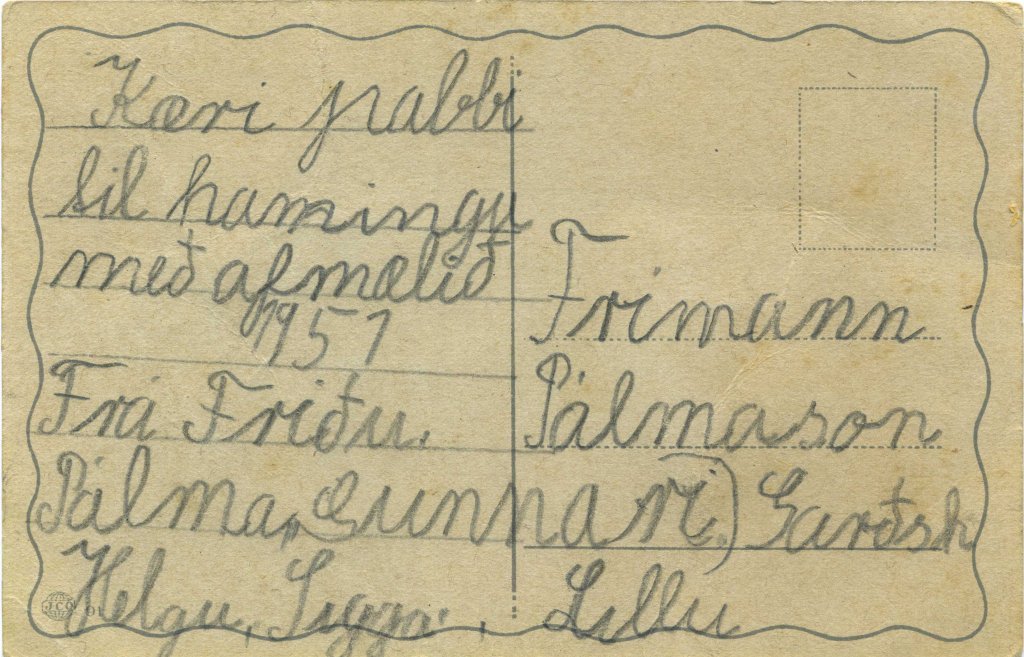 Kæri pabbi
til hamingu
með afmælið
1951
Frá Friðu.
Pálma, Gunnari.
Helgu, Sigga, Lillu
Frimann
Pálmason
Garðsh
JCO